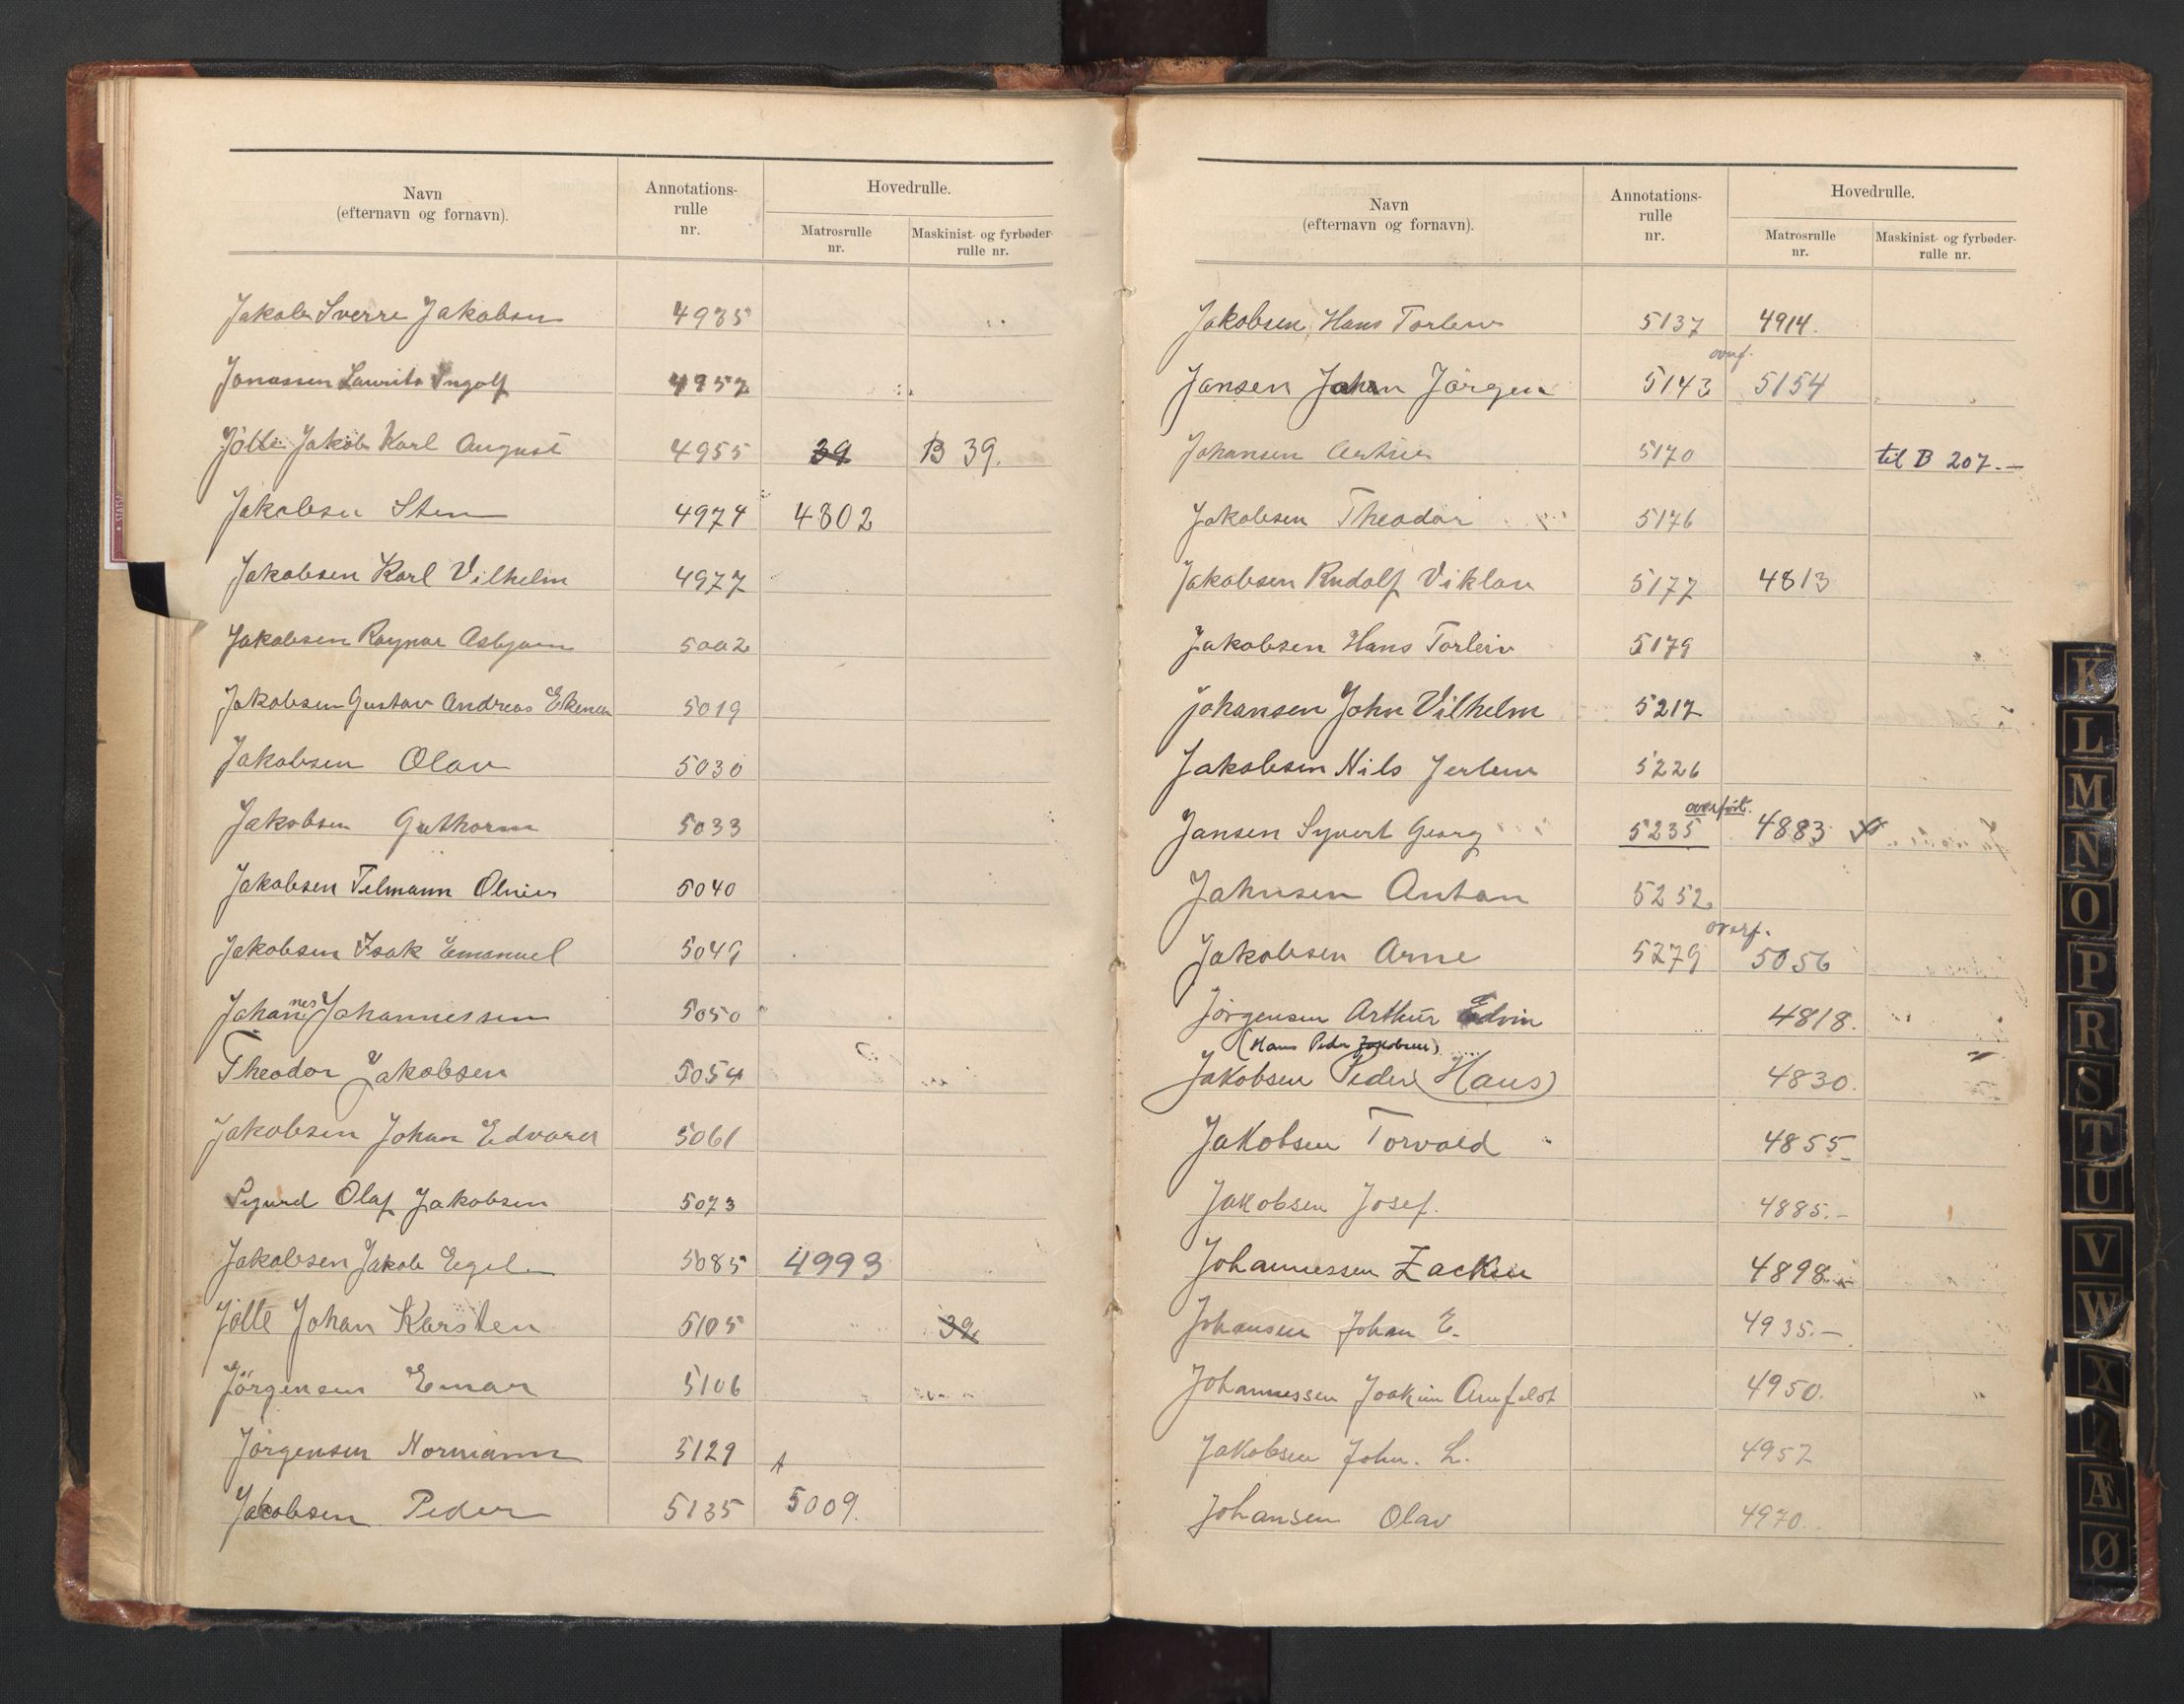 Navn
(efternavn og fornavn).
Annotations-
rulle
nr.
Hovedrulle.
Matrosrulle
nr.
Maskinist- og fyrbøder-
rulle nr.
Jakob Sverre Jakobsen 4935
Jonassen Laurits Ingolf 4952
Jölle Jakob Karl August 4955 39 B 39.
Jakobsen Sten 4974 4802
Jakobsen Karl Vilhelm 4977
Jakobsen Ragnar Asbjørn 5002
Jakobsen Gustav Andreas 5019
Jakobsen Olav 5030
Jakobsen Guthorm 5033
Jakobsen Telmann 5040
Jakobsen Isak Emanuel 5049
Johannes Johannessen 5050
Theodor Jakobsen 5054
Jakobsen Johan Edvard 5061
Sigurd Olaf Jakobsen 5073
Jakobsen Jakob Egil 5085 4993
Jölle Johan Karsten 5105 39
Jörgensen Einar 5106
Jörgensen Normann 5129 A
Jakobsen Peder 5135 5009.
Navn
(efternavn og fornavn).
Annotations-
rulle
nr.
Hovedrulle.
Matrosrulle
nr.
Maskinist- og fyrbøder-
rulle nr.
Jakobsen, Hans Torleiv 5137 4914.
overf.
Jansen Johan Jörgen 5143 5154
Johansen 5170 til B 207.-
Jakobsen Theodor 5176
Jakobsen Rudolf 5177 4813
Jakobsen Hans Torleiv 5179
Johansen John Vilhelm 5217
Jakobsen Nils 5226
overfört.
Jansen Syvert Georg 5235 4883
Johnsen Anton 5252
overf.
Jakobsen Arne 5279 5056
Jörgensen Arthur Edvin 4818.
(Hans Peder Jakobsen)
Jakobsen Peder (Hans) 4830.
Jakobsen Torvald 4855-
Jakobsen Josef. 4885.-
Johannessen 4898
Johansen Johan E. 4935.-
Johannessen Joakim Arnfeldt 4950.
Jakobsen John. L. 4957
Johansen Olav 4970.
K
L
M
N
O
P
R
S
T
U
V
W
X
Æ
Ø